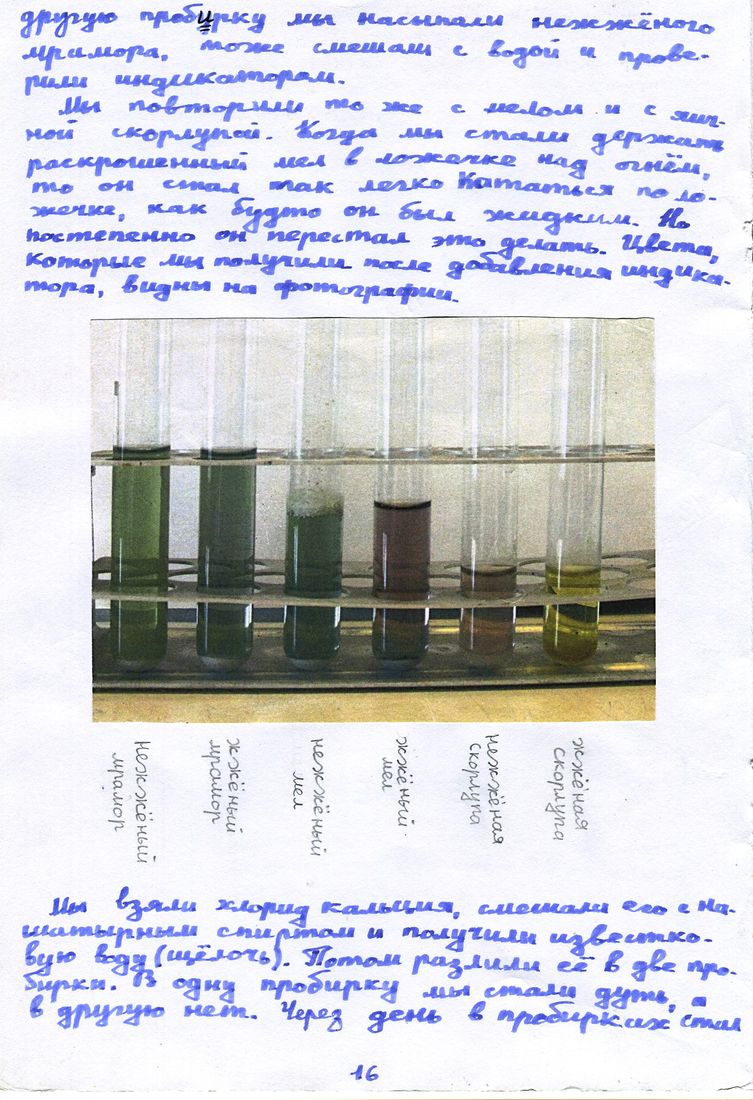 другую пробирку мы насыпали нежжёного
мрамора, тоже смешали с водой и прове-
рили индикатором.
Мы повторили то же с мелом и с яич-
ной скорлупой. Когда мы стали держать
раскрошенный мел в ложечке над огнём,
то он стал так легко кататься по ло-
жечке, как будто он был жидким. Но
постепенно он перестал это делать. Цвета,
которые мы получили после добавления индика-
тора, видны на фотографии.
нежжёный
мрамор
жжёный
мрамор
нежжёный
мел
жжёный
мел
нежжёная
скорлупа
жжёная
скорлупа
Мы взяли хлорид кальция, смешали его с на-
шатырным спиртом и получили известко-
вую воду (щёлочь). Потом разлили её в две про-
бирки. В одну пробирку мы стали дуть, а
в другую нет. Через день в пробирках стал
16